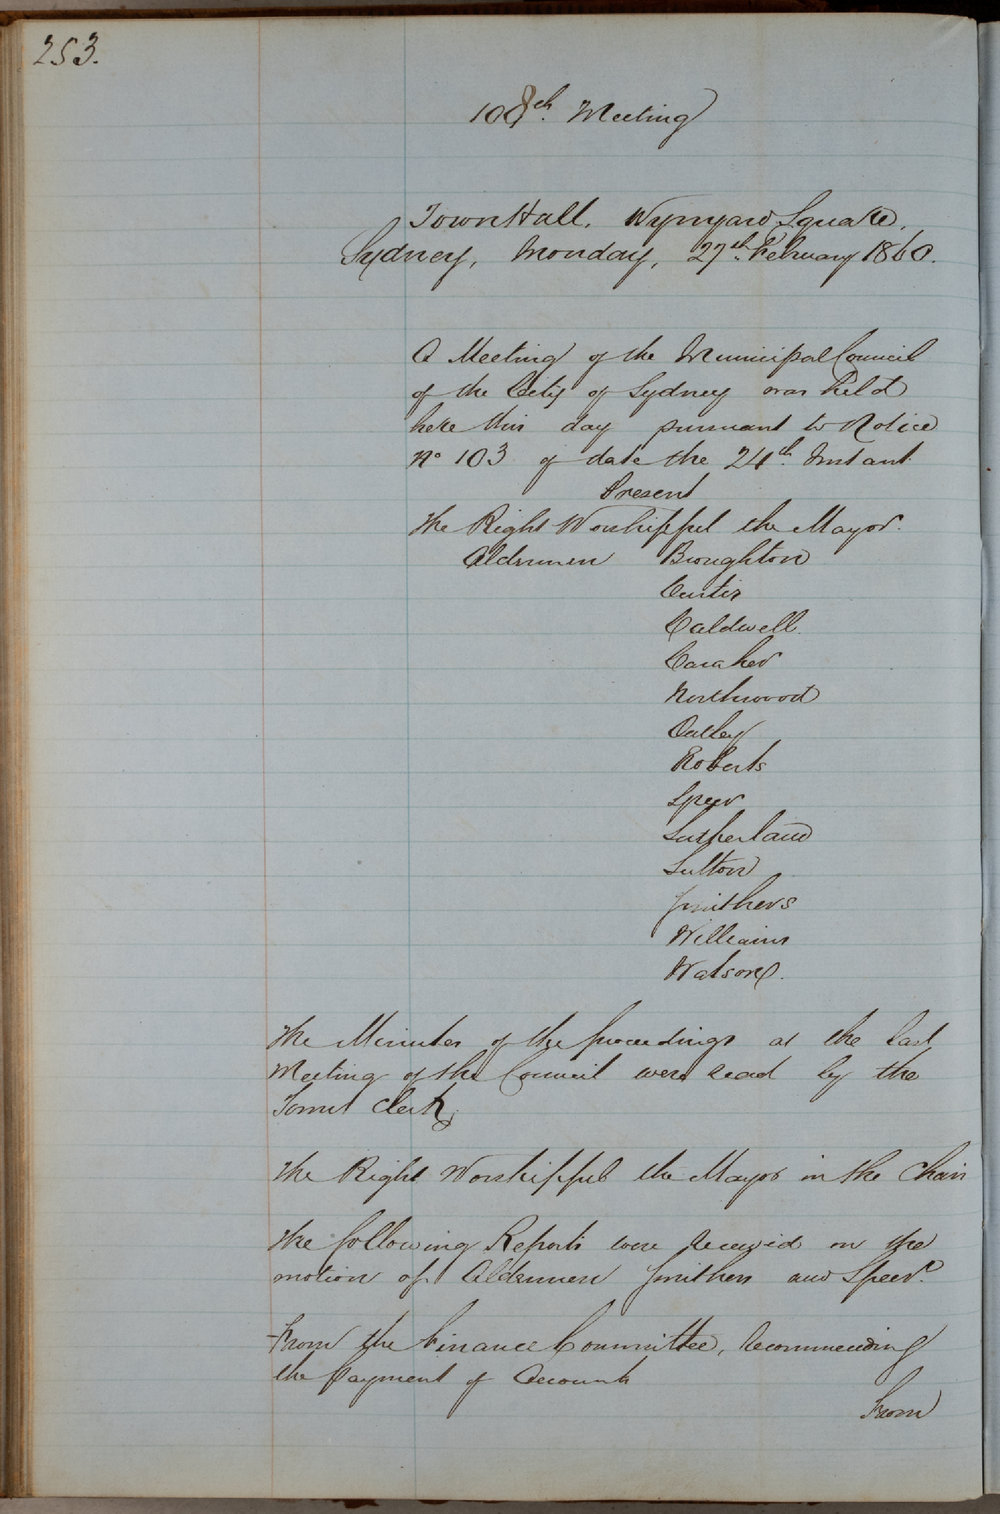 253.
108th. Meeting
Town Hall, Wynyard Square,
Sydney, Monday, 27th. February 1860.
A Meeting of the Municipal Council
of the City of Sydney was held
here this day pursuant to Notice
No 103 of date the 24th. Instant.
Present
The Right Worshipful the Mayor.
Aldermen Broughton
Curtis
Caldwell.
Caraher
Northwood
Oatley
Roberts
Speer
Sutherland
Sutton
Smithers
Williams
Watson.
The Minutes of the proceedings at the last
Meeting of the Council were read by the
Town Clerk.
The Right Worshipful the Mayor in the Chair
The following Reports were received on the
motion of Aldermen Smithers and Speer.
From the Finance Committee, recommending
the payment of Accounts
From